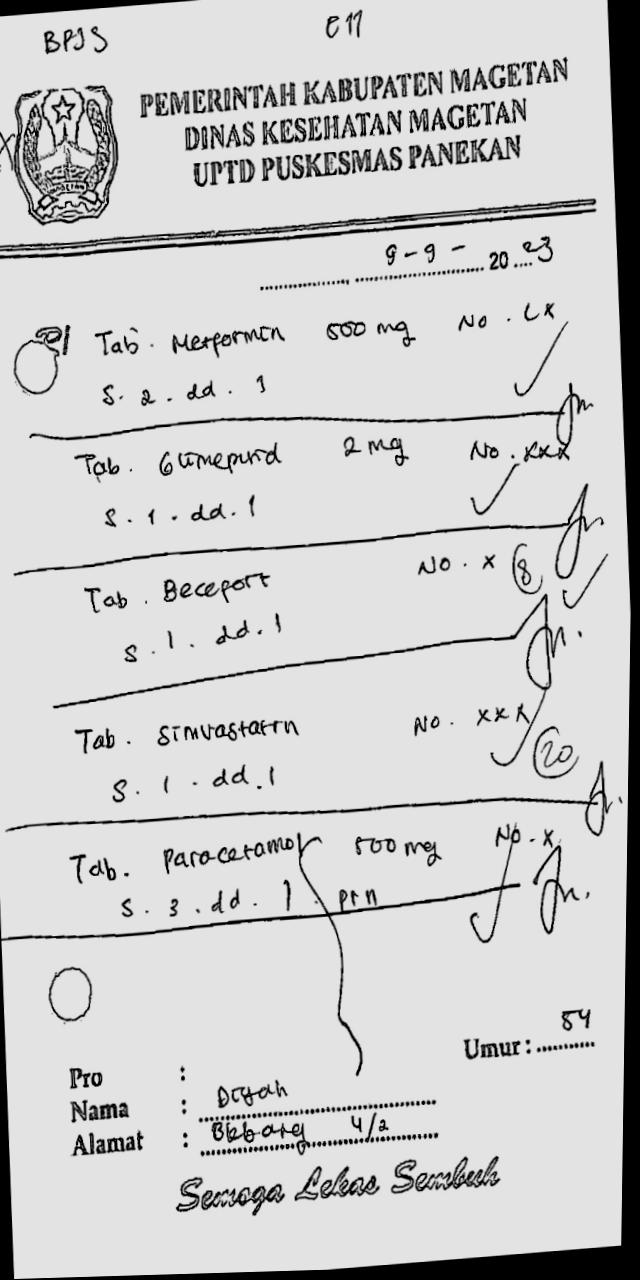 BPJS E11
PEMERINTAH KABUPATEN MAGETAN
DINAS KESEHATAN MAGETAN
UPTD PUSKESMAS PANEKAN
9-9-2023
Tab. Metformin 500 mg No. LX
S. 2. dd. 1
Tab. Glimepirid 2 mg No. XXX
S. 1. dd. 1
Tab. Becefort No. X 8
S. 1. dd. 1
Tab. Simvastatin No. XXX 20
S. 1. dd. 1
Tab. Paracetamol 500 mg No. X
S. 3. dd. 1. prn
Umur : 54
Pro :
Nama : Diyah
Alamat : 4/2
Semoga Lekas Sembuh